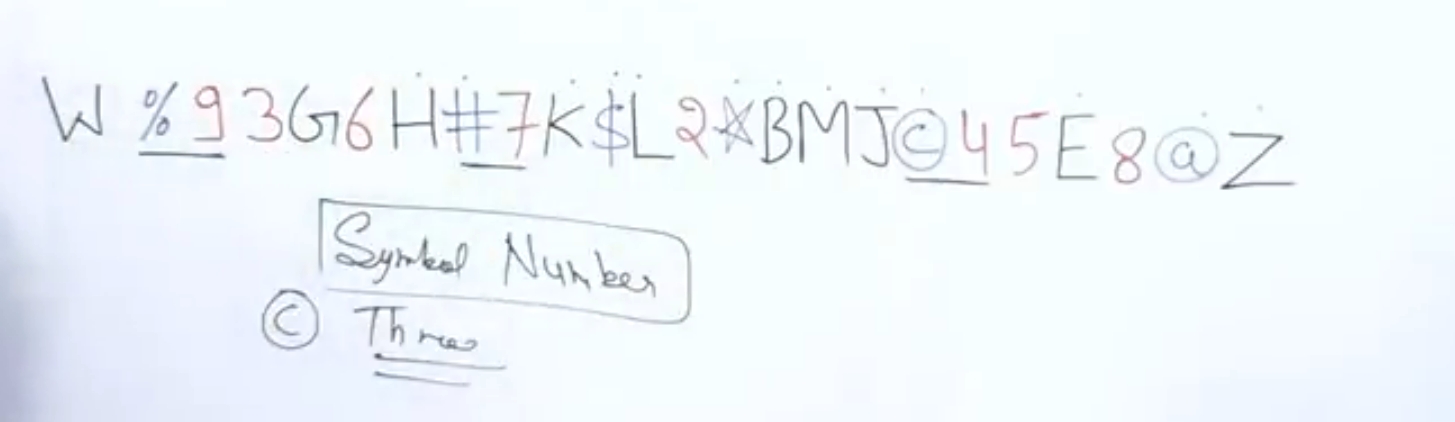 W % 9 3 G 6 H # 7 K $ L 2 * B M J © 4 5 E 8 @ Z
Symbol Number
© Three